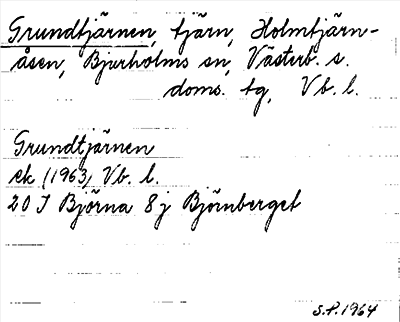 Grundtjärnen, tjärn, Holmtjärn-
åsen, Bjurholms sn, Västerb. s.
doms. tg, Vb. l.
Grundtjärnen
ek (1963) Vb. l.
20 J Björna 8j Björnberget
S.P. 1964